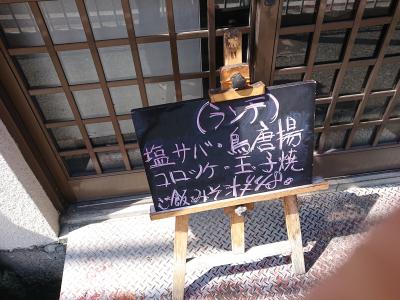 (ランチ)
塩サバ・鳥唐揚
コロッケ・玉子焼
ご飯みそオカワリ